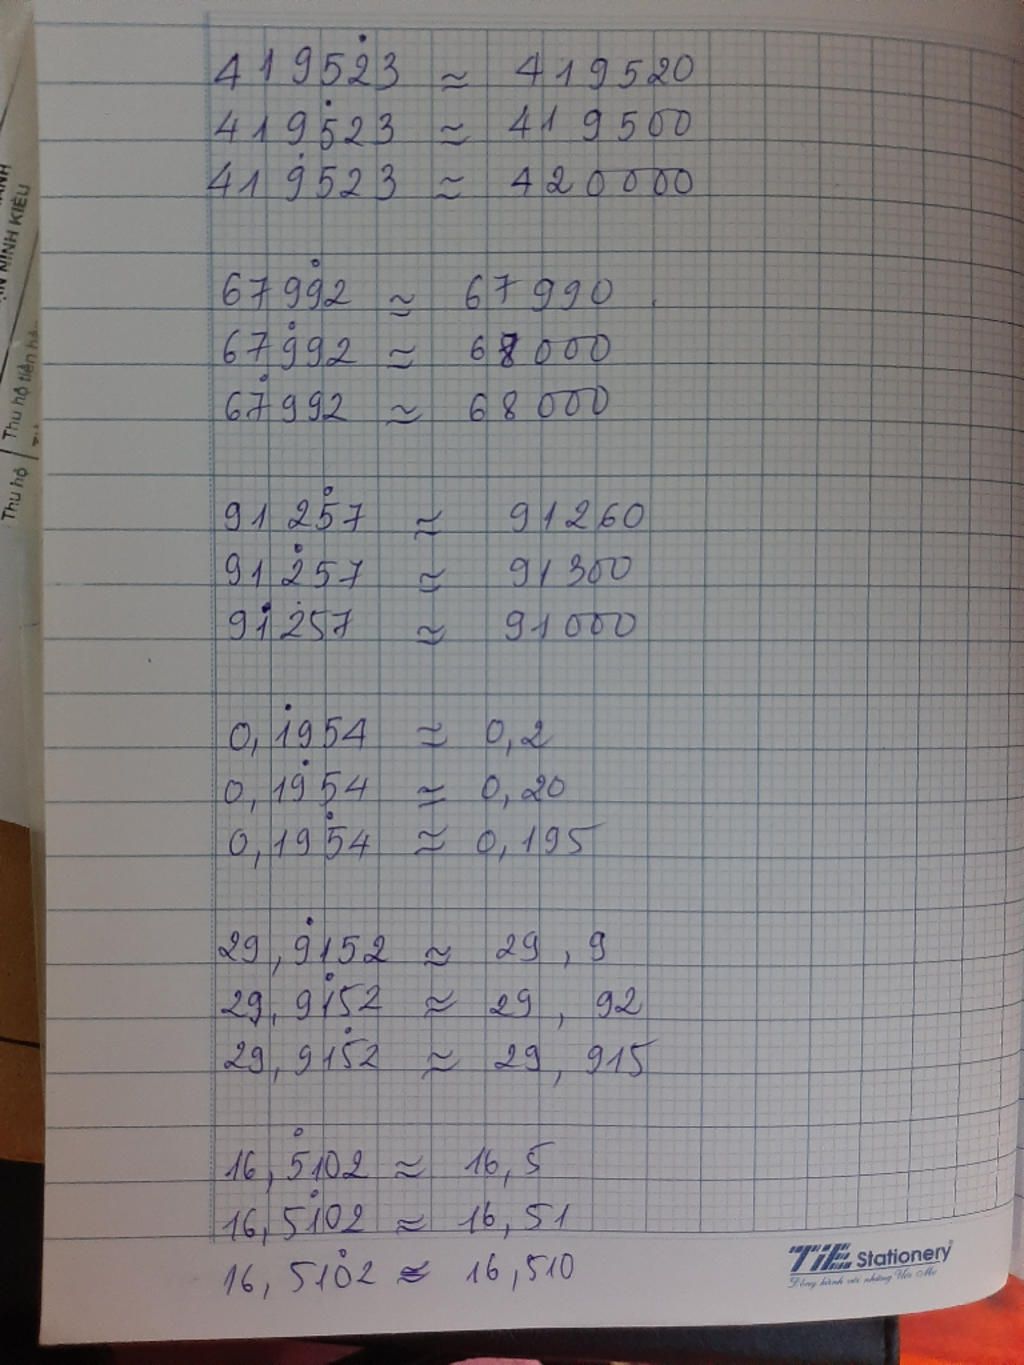 419523 ≈ 419520
419523 ≈ 419500
419523 ≈ 420000
67992 ≈ 67990
67992 ≈ 68000
67992 ≈ 68000
91257 ≈ 91260
91257 ≈ 91300
91257 ≈ 91000
0,1954 ≈ 0,2
0,1954 ≈ 0,20
0,1954 ≈ 0,195
29,9152 ≈ 29,9
29,9152 ≈ 29,92
29,9152 ≈ 29,915
16,5102 ≈ 16,5
16,5102 ≈ 16,51
16,5102 ≈ 16,510
TiE Stationery
NINH KIỀU
Thu hộ tiền
Thu hộ